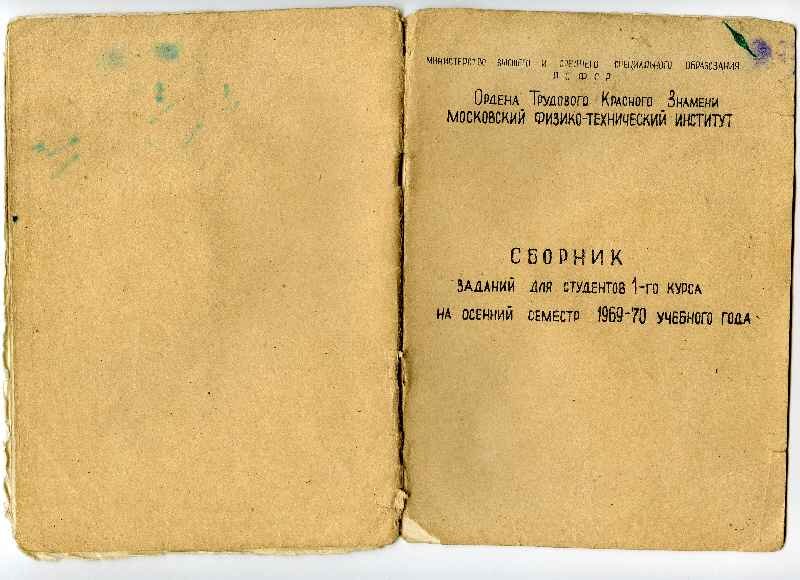 МИНИСТЕРСТВО ВЫСШЕГО И СРЕДНЕГО СПЕЦИАЛЬНОГО ОБРАЗОВАНИЯ
РСФСР
ОРДЕНА ТРУДОВОГО КРАСНОГО ЗНАМЕНИ
МОСКОВСКИЙ ФИЗИКО-ТЕХНИЧЕСКИЙ ИНСТИТУТ
СБОРНИК
ЗАДАНИЙ ДЛЯ СТУДЕНТОВ 1-ГО КУРСА
НА ОСЕННИЙ СЕМЕСТР 1969-70 УЧЕБНОГО ГОДА